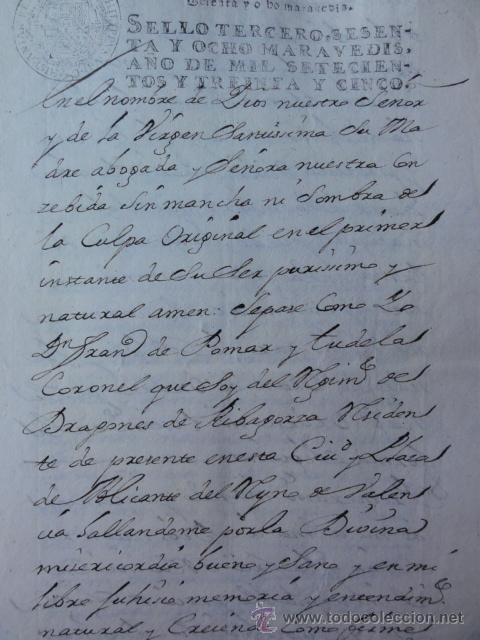 Sesenta y ocho maravedis.
SELLO TERCERO, SESEN-
TA Y OCHO MARAVEDIS,
AÑO DE MIL SETECIEN-
TOS Y TREINTA Y CINCO.
En el nombre de Dios nuestro Señor
y de la Virgen Santissima Su Ma
dre abogada y Señora nuestra Con
zebida Sin mancha ni Sombra de
la Culpa Original en el primer
instante de Su Ser purissimo y
natural amen: Sepase Como Yo
Dn Franco de Pomar y tudela
Coronel que Soy del Rgimto de
Dragones de Ribagorza Residen
te de presente en esta Ciud y Plaza
de Alicante del Reyno de Valen
cia hallandome por la Divina
misericordia bueno y Sano y en mi
libre juhisio memoria y entendimto
natural y Creiendo Como
todocoleccion
www.todocoleccion.net